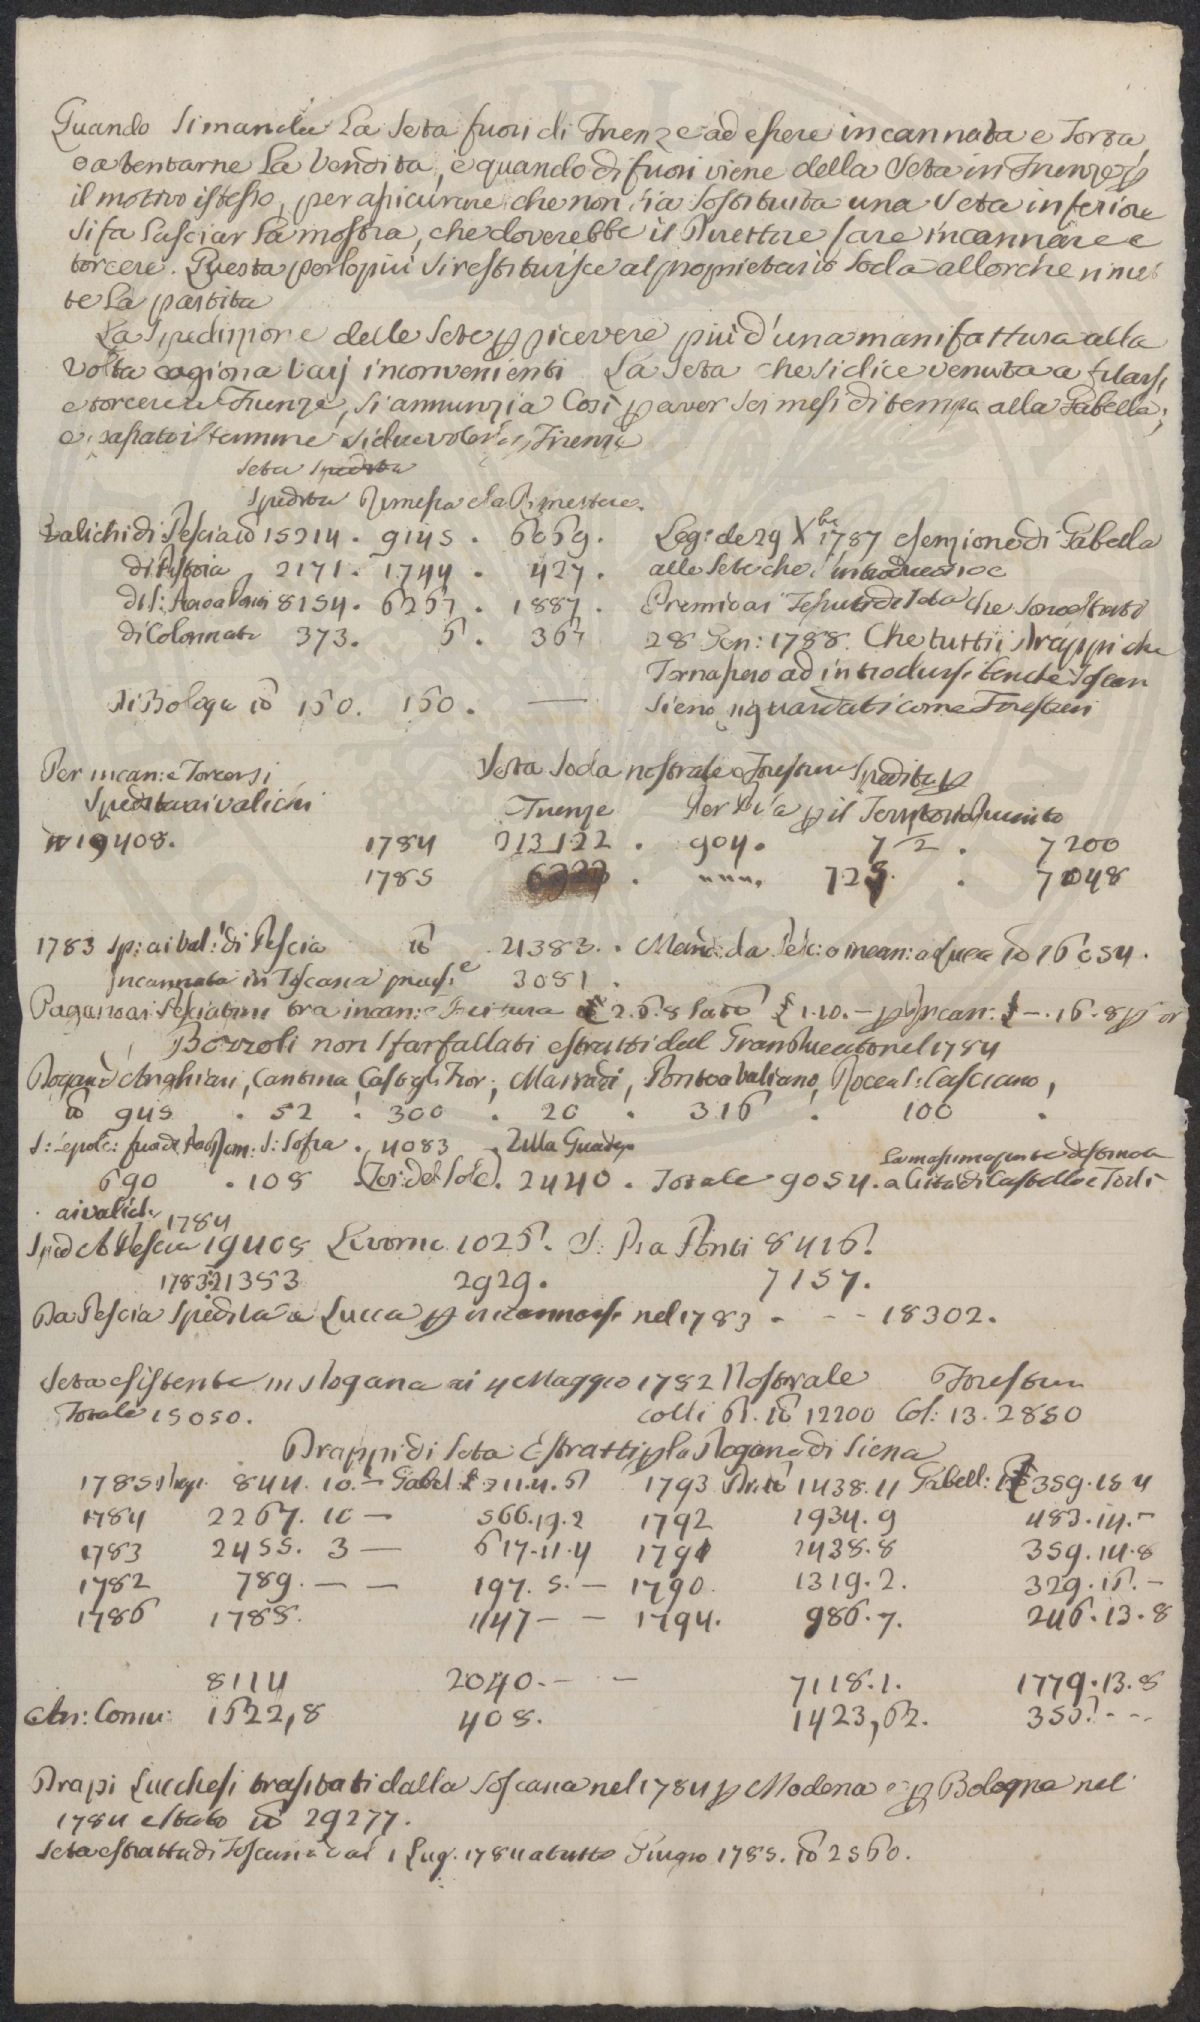 Quando si manda la Seta fuori di Firenze ad essere incannata e Torta,
o a tentarne la Vendita, e quando di fuori viene della Seta in Firenze p
il motivo istesso, per assicurare che non sia sostituita una Seta inferiore
si fa lasciar la mostra, che doverebbe il Direttore fare incannare e
torcere. Questa per lo piu si restituisce al proprietario soda allorche rimet
te la partita
La Spedizione delle Sete p ricevere piu d'una manifattura alla
volta cagiona varj inconvenienti La Seta che si dice venuta a filarsi
e torcere a Firenze, si annunzia Cosi p aver sei mesi di tempo alla Gabella;
e passato il termine si
Seta
Spedita Rimessa da Rimettere.
Valichi di Pescia lb 15214. 9145. 6069. Leg: de 29 Xbre 1787 esenzione di Gabella
di Pistoia 2171. 1744. 427. alle Sete che
di S: 8154. 6267. 1887. Premio ai Tessuti di Seta che sono estratti
di Colonnata 373. 6. 367 28 Gen: 1788. Che tutti i drappi che
Tornassero ad introdursi benche Toscan
di Bologa lb 150. 150. — sieno riguardati come Forestieri
Per incan: e Torcersi Seta Soda nostrale e Forestiera Spedita p
Spedita ai valichi Firenze Per p il Territorio
lb 19408. 1784 213122. 904. 7 1/2. 7200
1785 7048
1783 sp: ai val: di Pescia lb 21383. Mand: da Pesc: a incan: a Lucca lb 16054.
Incannata in Toscana 3081.
Pagano ai Pesciatini tra incan: e £ 2.6.8 la lb £ 1.10.— p Incan: £ —.16.8 p
Bozzoli non sfarfallati estratti dal Granducato nel 1784
Dogana d'Anghiari, Cantina Castigl: Fior:, Marradi, Pontea, Rocca S: Casciano,
lb 945. 52. 300. 20. 316. 100.
S: Sepolc: S: Sofia. 4083.
690. 108 Ter: del Sole. 2440. Totale 9054. la massima parte destinata a Città di Castello e
ai valichi 1784
Sped A Pescia 19408 Livorno 1026. S: Pia Ponti 8416.
1783 21353 2929. 7157.
Da Pescia spedita a Lucca p incannarsi nel 1783. - - 18302.
Seta esistente in Dogana ai 4 Maggio 1782 Nostrale Forestiera
Totale 15050. colli 61. lb 12200 Col: 13. 2850
Drappi di Seta Estratti p la Dogana di Siena
1785 Drap: 844. 10.— Gabel: £ 211.4.5 1793 Dr: lb 1438.11 Gabell: £ 359.15 4
1784 2267. 10 — 566.19.2 1792 1934.9 483.14.—
1783 2455. 3 — 617.11.4 1791 1438.8 359.14.8
1782 789. — — 197.5.— 1790. 1319.2. 329.16.—
1786 1788. 447 — — 1794. 986.7. 246.13.8
8114 2040.— — 7118.1. 1779.13.8
An: Comu: 1622,8 408. 1423,62. 355. - -
Drapi Lucchesi trasitati dalla Toscana nel 1784 p Modena e p Bologna nel
1784 e stato lb 29277.
Seta estratta di Toscana dal 1 Lug. 1784 a tutto Giugno 1785. lb 2560.